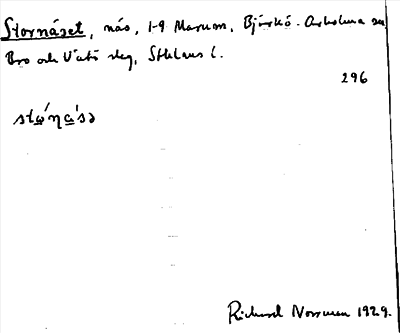 Stornäset, näs, 1-9 Marum, Björkö-Arholma sn
Bro och Vätö skg, Sthlms l.
296
Richard Norrman 1929.